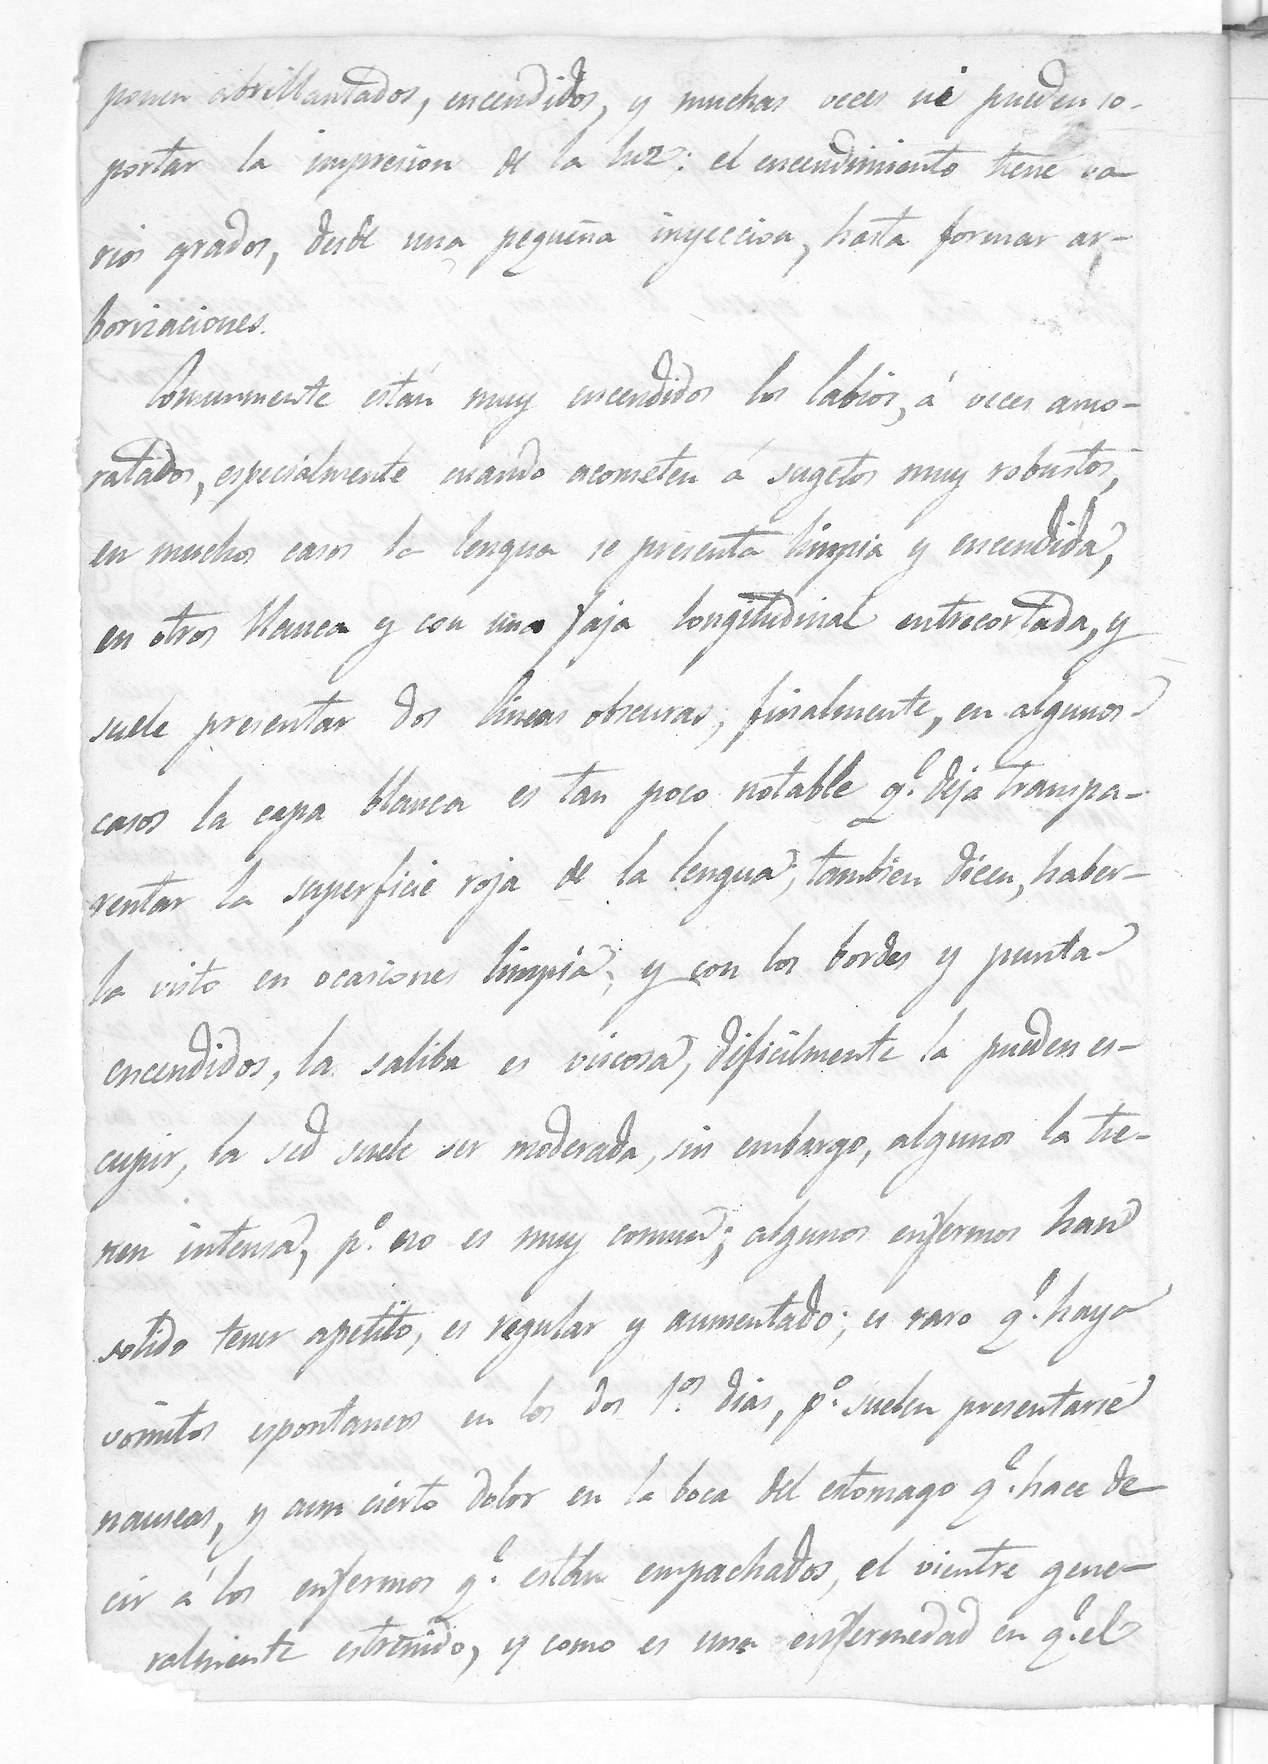 ponen abrillantados, encendidos, y muchas veces ni pueden so-
portar la impresion de la luz; el encendimiento tiene va-
rios grados, desde una pequeña inyeccion, hasta formar ar-
borizaciones.
Comunmente están muy encendidos los labios, á veces amo-
ratados, especialmente cuando acometen á sugetos muy robustos,
en muchos casos la lengua se presenta limpia y encendida,
en otros blanca y con una faja longitudinal entrecortada, y
suele presentar dos lineas obscuras; finalmente, en algunos
casos la capa blanca es tan poco notable q.e deja transpa-
rentar la superficie roja de la lengua; tambien dicen, haber-
la visto en ocasiones limpia; y con los bordes y punta
encendidos, la saliba es viscosa, dificilmente la pueden es-
cupir, la sed suele ser moderada, sin embargo, algunos la tie-
nen intensa, p.o eso es muy comun; algunos enfermos han
solido tener apetito, es regular y aumentado; es raro q.e haya
vomitos espontaneos en los dos 1.os dias, p.o suelen presentarse
nauseas, y aun cierto dolor en la boca del estomago q.e hace de-
cir á los enfermos q.e están empachados, el vientre gene-
ralmente estreñido, y como es una enfermedad en q.e el